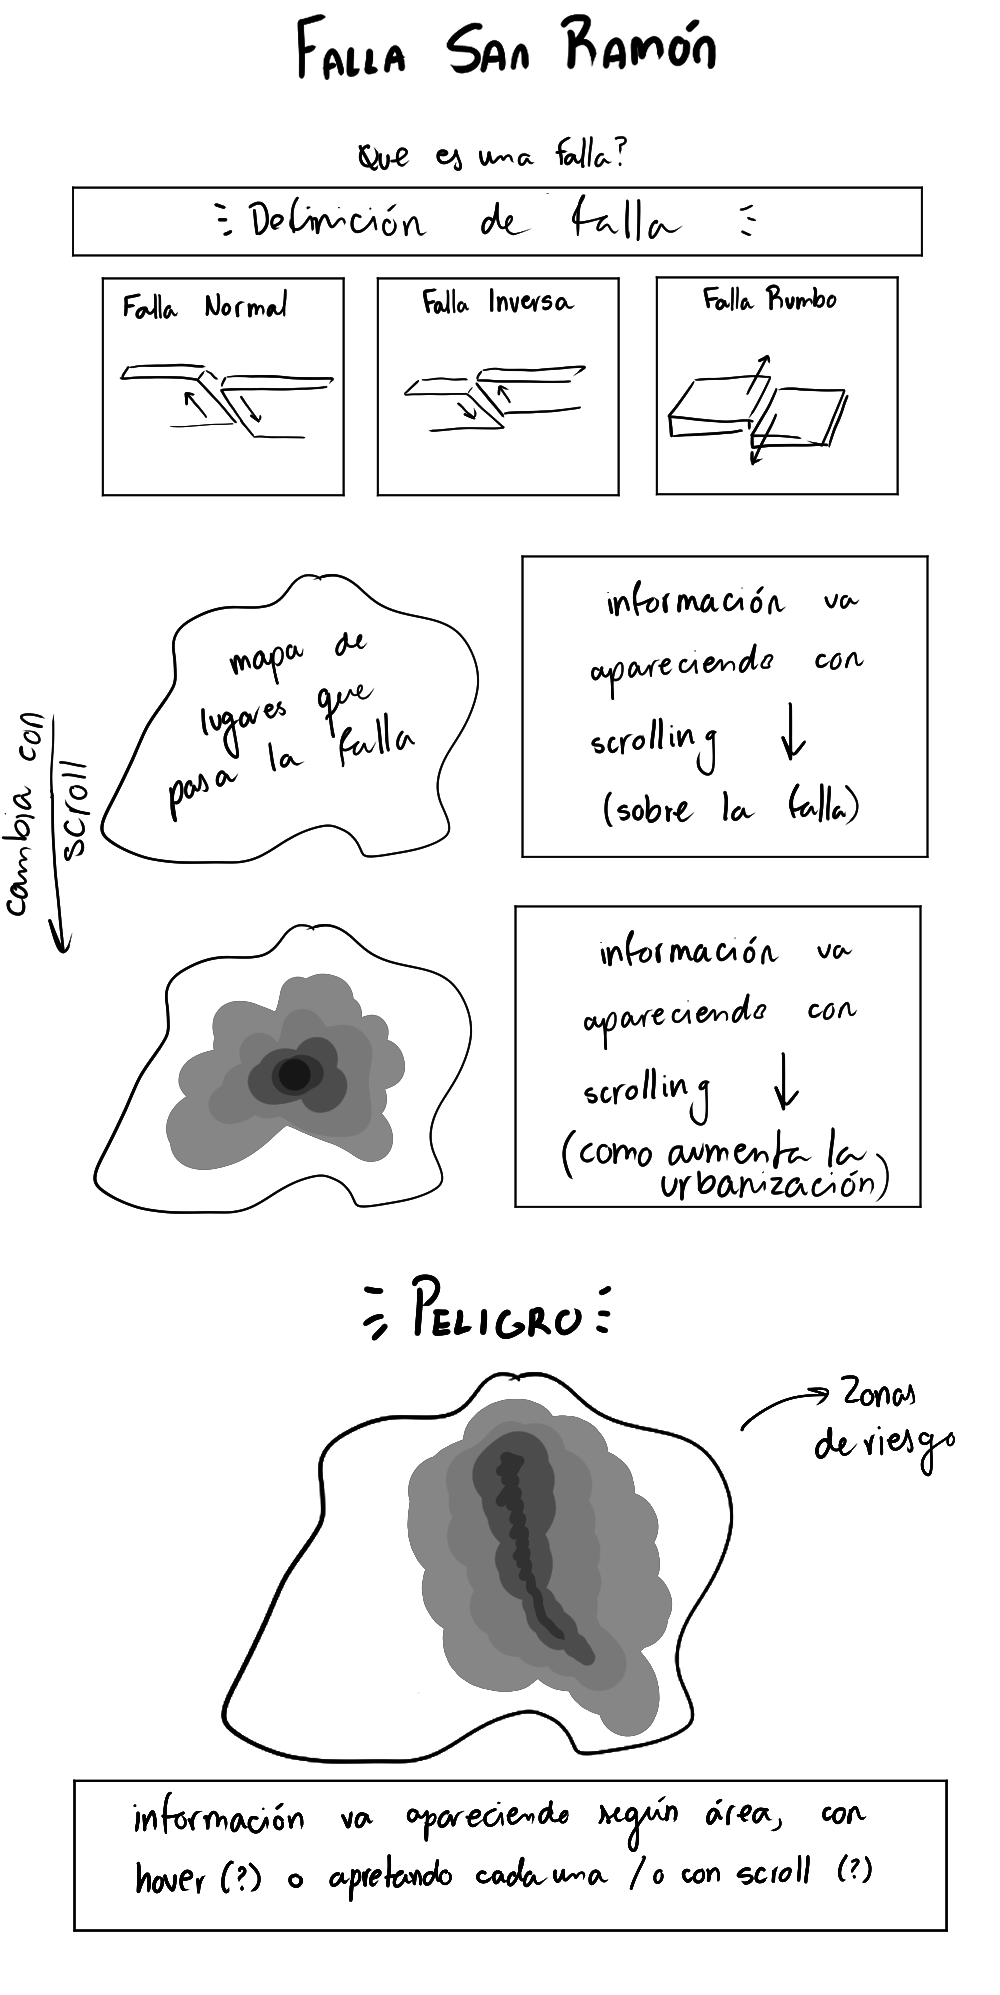 FALLA SAN RAMÓN
Que es una falla?
Definición de falla
Falla Normal
Falla Inversa
Falla Rumbo
cambia con
scroll
mapa de
lugares que
pasa la falla
información va
apareciendo con
scrolling ↓
(sobre la falla)
información va
apareciendo con
scrolling ↓
(como aumenta la
urbanización)
PELIGRO
Zonas
de riesgo
información va apareciendo según área, con
hover (?) o apretando cada una / o con scroll (?)